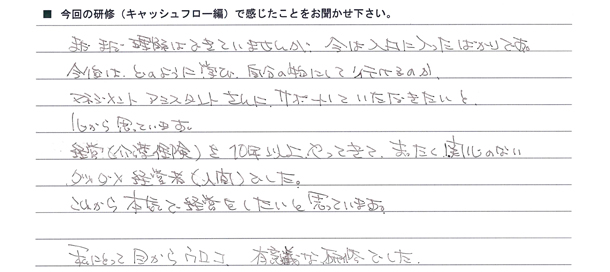 ■ 今回の研修（キャッシュフロー編）で感じたことをお聞かせ下さい。
まだまだ理解はできていませんが、今は入口に入ったばかりです。
今後は、どのように学び、自分の物にして行けるのか、
マネジメントアシスタントさんに、サポートしていただきたいと、
心から思っています。
経営（介護保険）を10年以上やってきて、まったく関心のない
ダメダメ経営者（人間）でした。
これから本気で経営をしたいと思っています。
私にとって目からウロコ、有意義な研修でした。